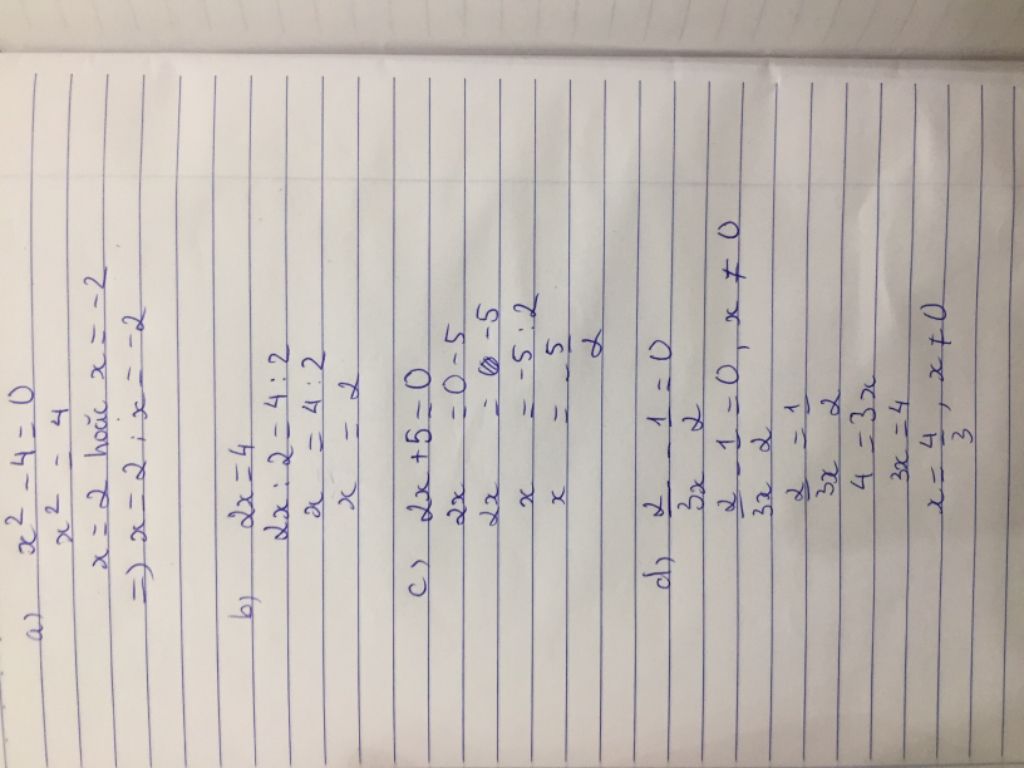 a) x² - 4 = 0
x² = 4
x = 2 hoặc x = -2
=) x = 2 ; x = -2
b) 2x = 4
2x : 2 = 4 : 2
x = 4 : 2
x = 2
c) 2x + 5 = 0
2x = 0 - 5
2x = -5
x = -5 : 2
x = -5/2
d) 2/3x - 1/2 = 0
2/3x - 1/2 = 0, x ≠ 0
2/3x = 1/2
4 = 3x
3x = 4
x = 4/3, x ≠ 0